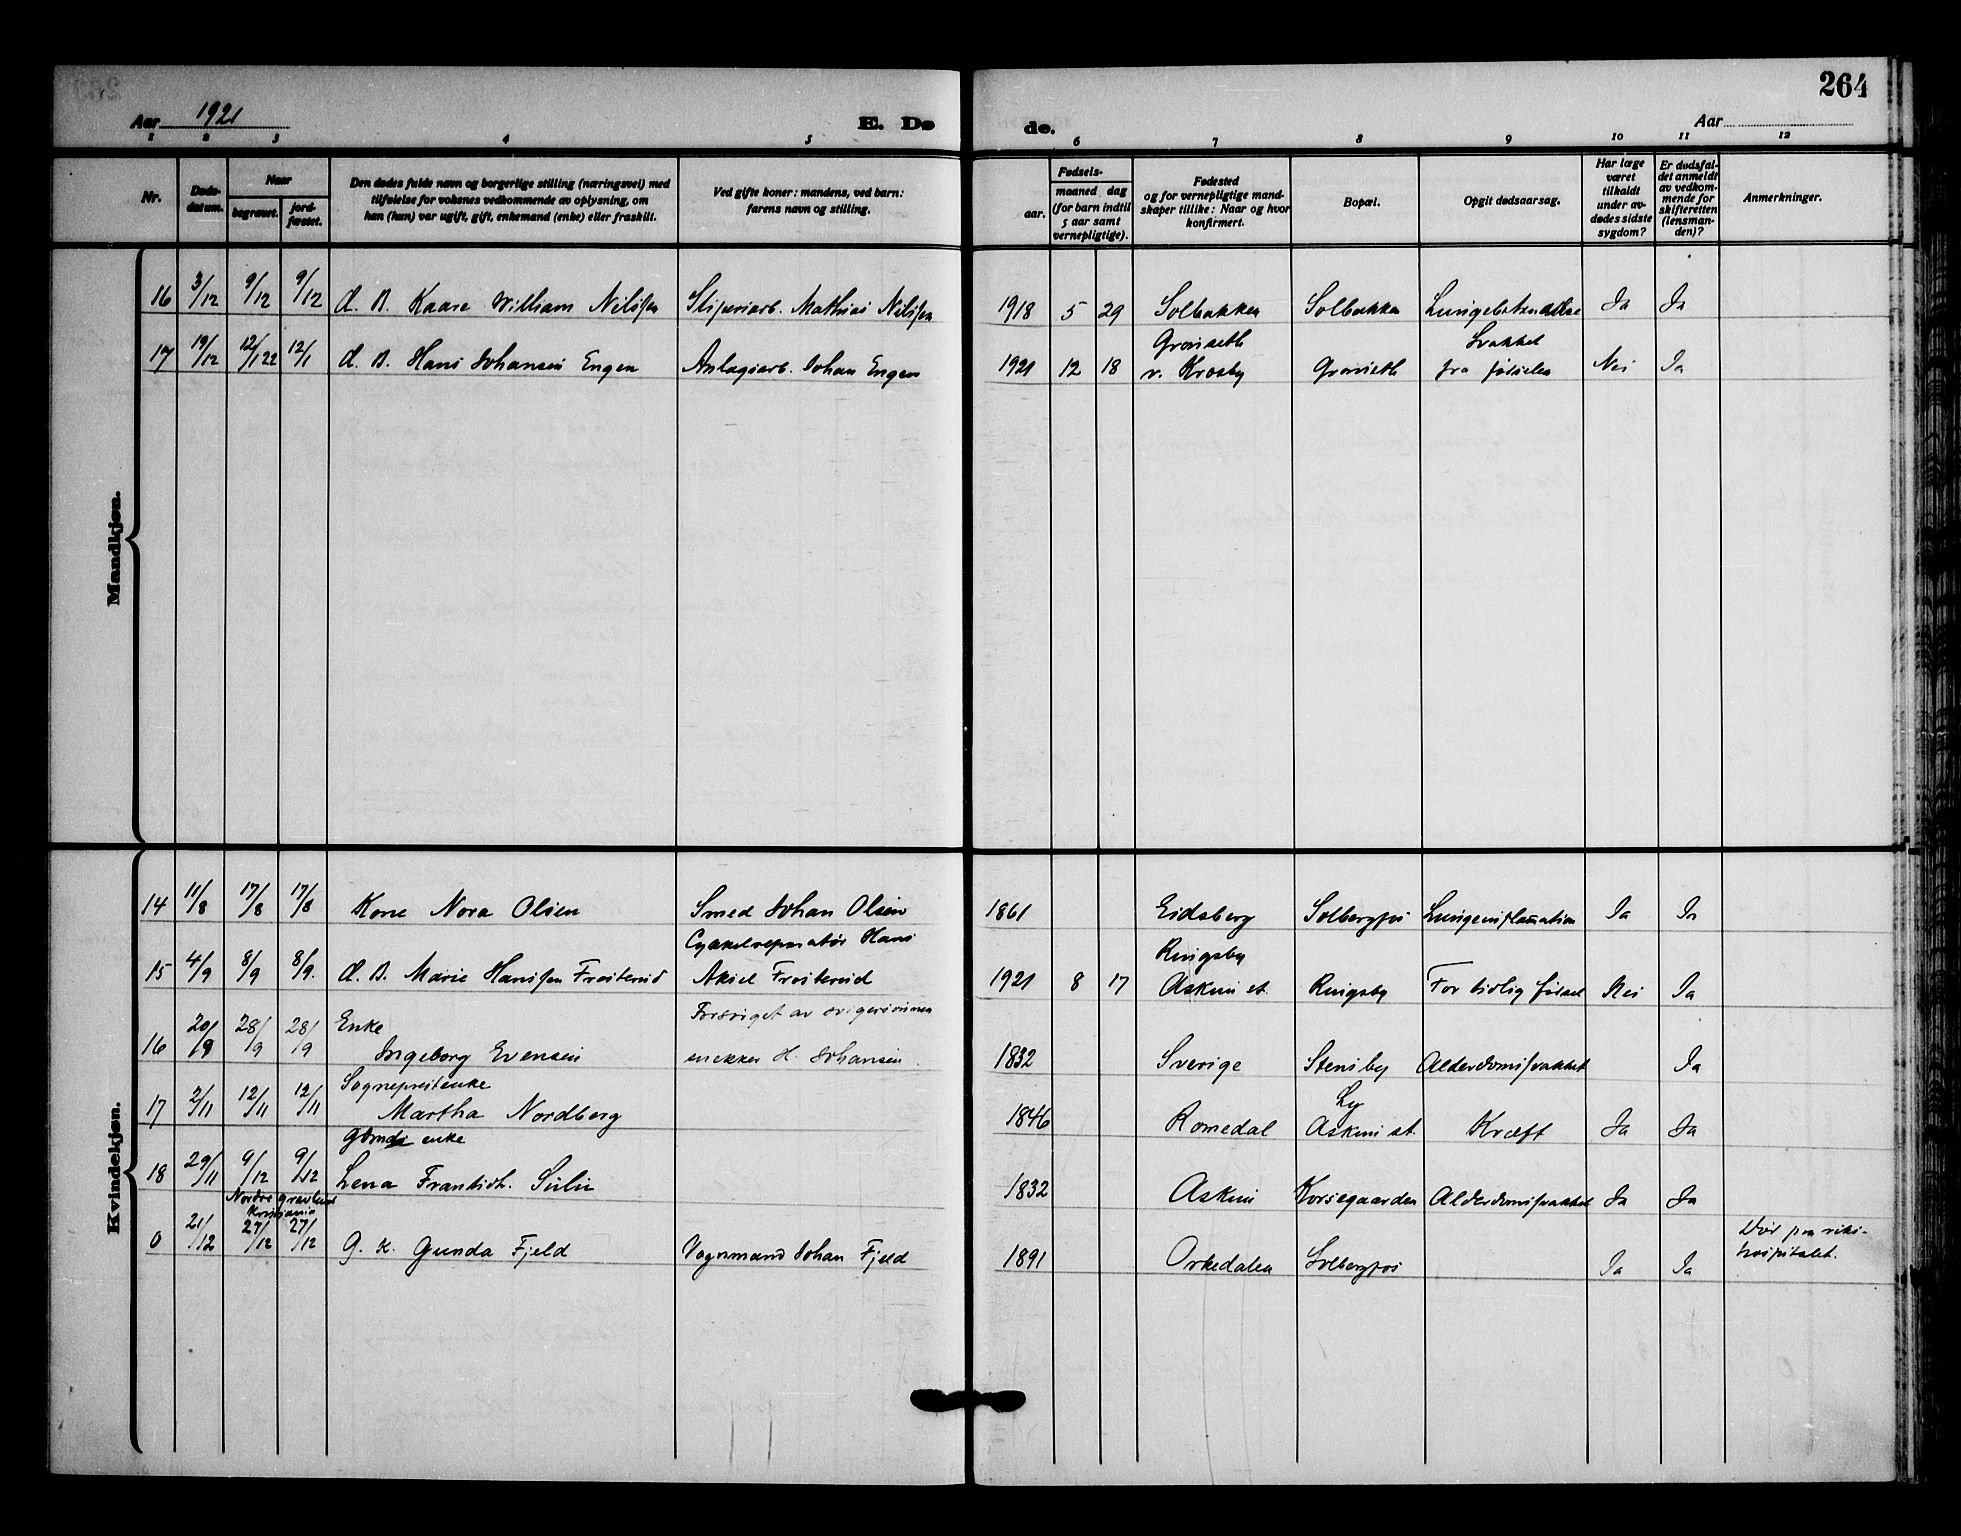 264
Aar 1921
E. Dø
de.
Aar
1 2 3 4 5 6 7 8 9 10 11 12
Nr.
Døds-
datum.
Naar
begravet.
jord-
fæstet.
Den dødes fulde navn og borgerlige stilling (næringsvei) med
tilføielse for voksnes vedkommende av oplysning, om
han (hun) var ugift, gift, enkemand (enke) eller fraskilt.
Ved gifte koner: mandens, ved barn:
farens navn og stilling.
Fødsels-
aar.
maaned dag
(for barn indtil
5 aar samt
vernepligtige).
Fødested
og for vernepligtige mand-
skaper tillike: Naar og hvor
konfirmert.
Bopæl.
Opgit dødsaarsag.
Har læge
været
tilkaldt
under av-
dødes sidste
sygdom?
Er dødsfal-
det anmeldt
av vedkom-
mende for
skifteretten
(lensman-
den)?
Anmerkninger.
Mandkjøn.
16 3/12 9/12 9/12 d. B. Kaare William Nilssen Sliperiarb. Mathias Nilssen 1918 5 29 Solbakken Solbakken Lungebetændelse Ja Ja
Gronseth Svakhet
17 19/12 12/1 22 12/1 d. B. Hans Johansen Engen Anlagsarb. Johan Engen 1921 12 18 v. Krosby Gronseth fra fødselen Nei Ja
Kvindekjøn.
14 11/8 17/8 17/8 Kone Nora Olsen Smed Johan Olsen 1861 Eidsberg Solbergfos Lungeinflamation Ja Ja
Cykkelreparatør Hans Ringsby
15 4/9 8/9 8/9. d. B. Marie Hanssen Frøsterud Aksel Frøsterud 1921 8 17 Askim st. Ringsby For tidlig fødsel Nei Ja
Enke Forsørget av svigersønnen
16 20/9 28/9 28/9 Ingeborg Evensen snekker H. Johansen. 1832 Sverige Stensby Alderdomssvakhet Ja
Sogneprestenke Ly
17 2/11 12/11 12/11 Martha Nordberg 1846 Romedal Askim st. Kræft Ja Ja
Gbmds enke
18 29/11 9/12 9/12 Lena Frantsdt. Sulu 1832 Askim Korsegaarden Alderdomssvakhet Ja Ja
Nordre gravlund
Kristiania
0 21/12 27/12 27/12 G. K. Gunda Fjeld Vognmand Johan Fjeld 1891 Orkedalen Solbergfos Ja Ja Død paa riks-
hospitalet.